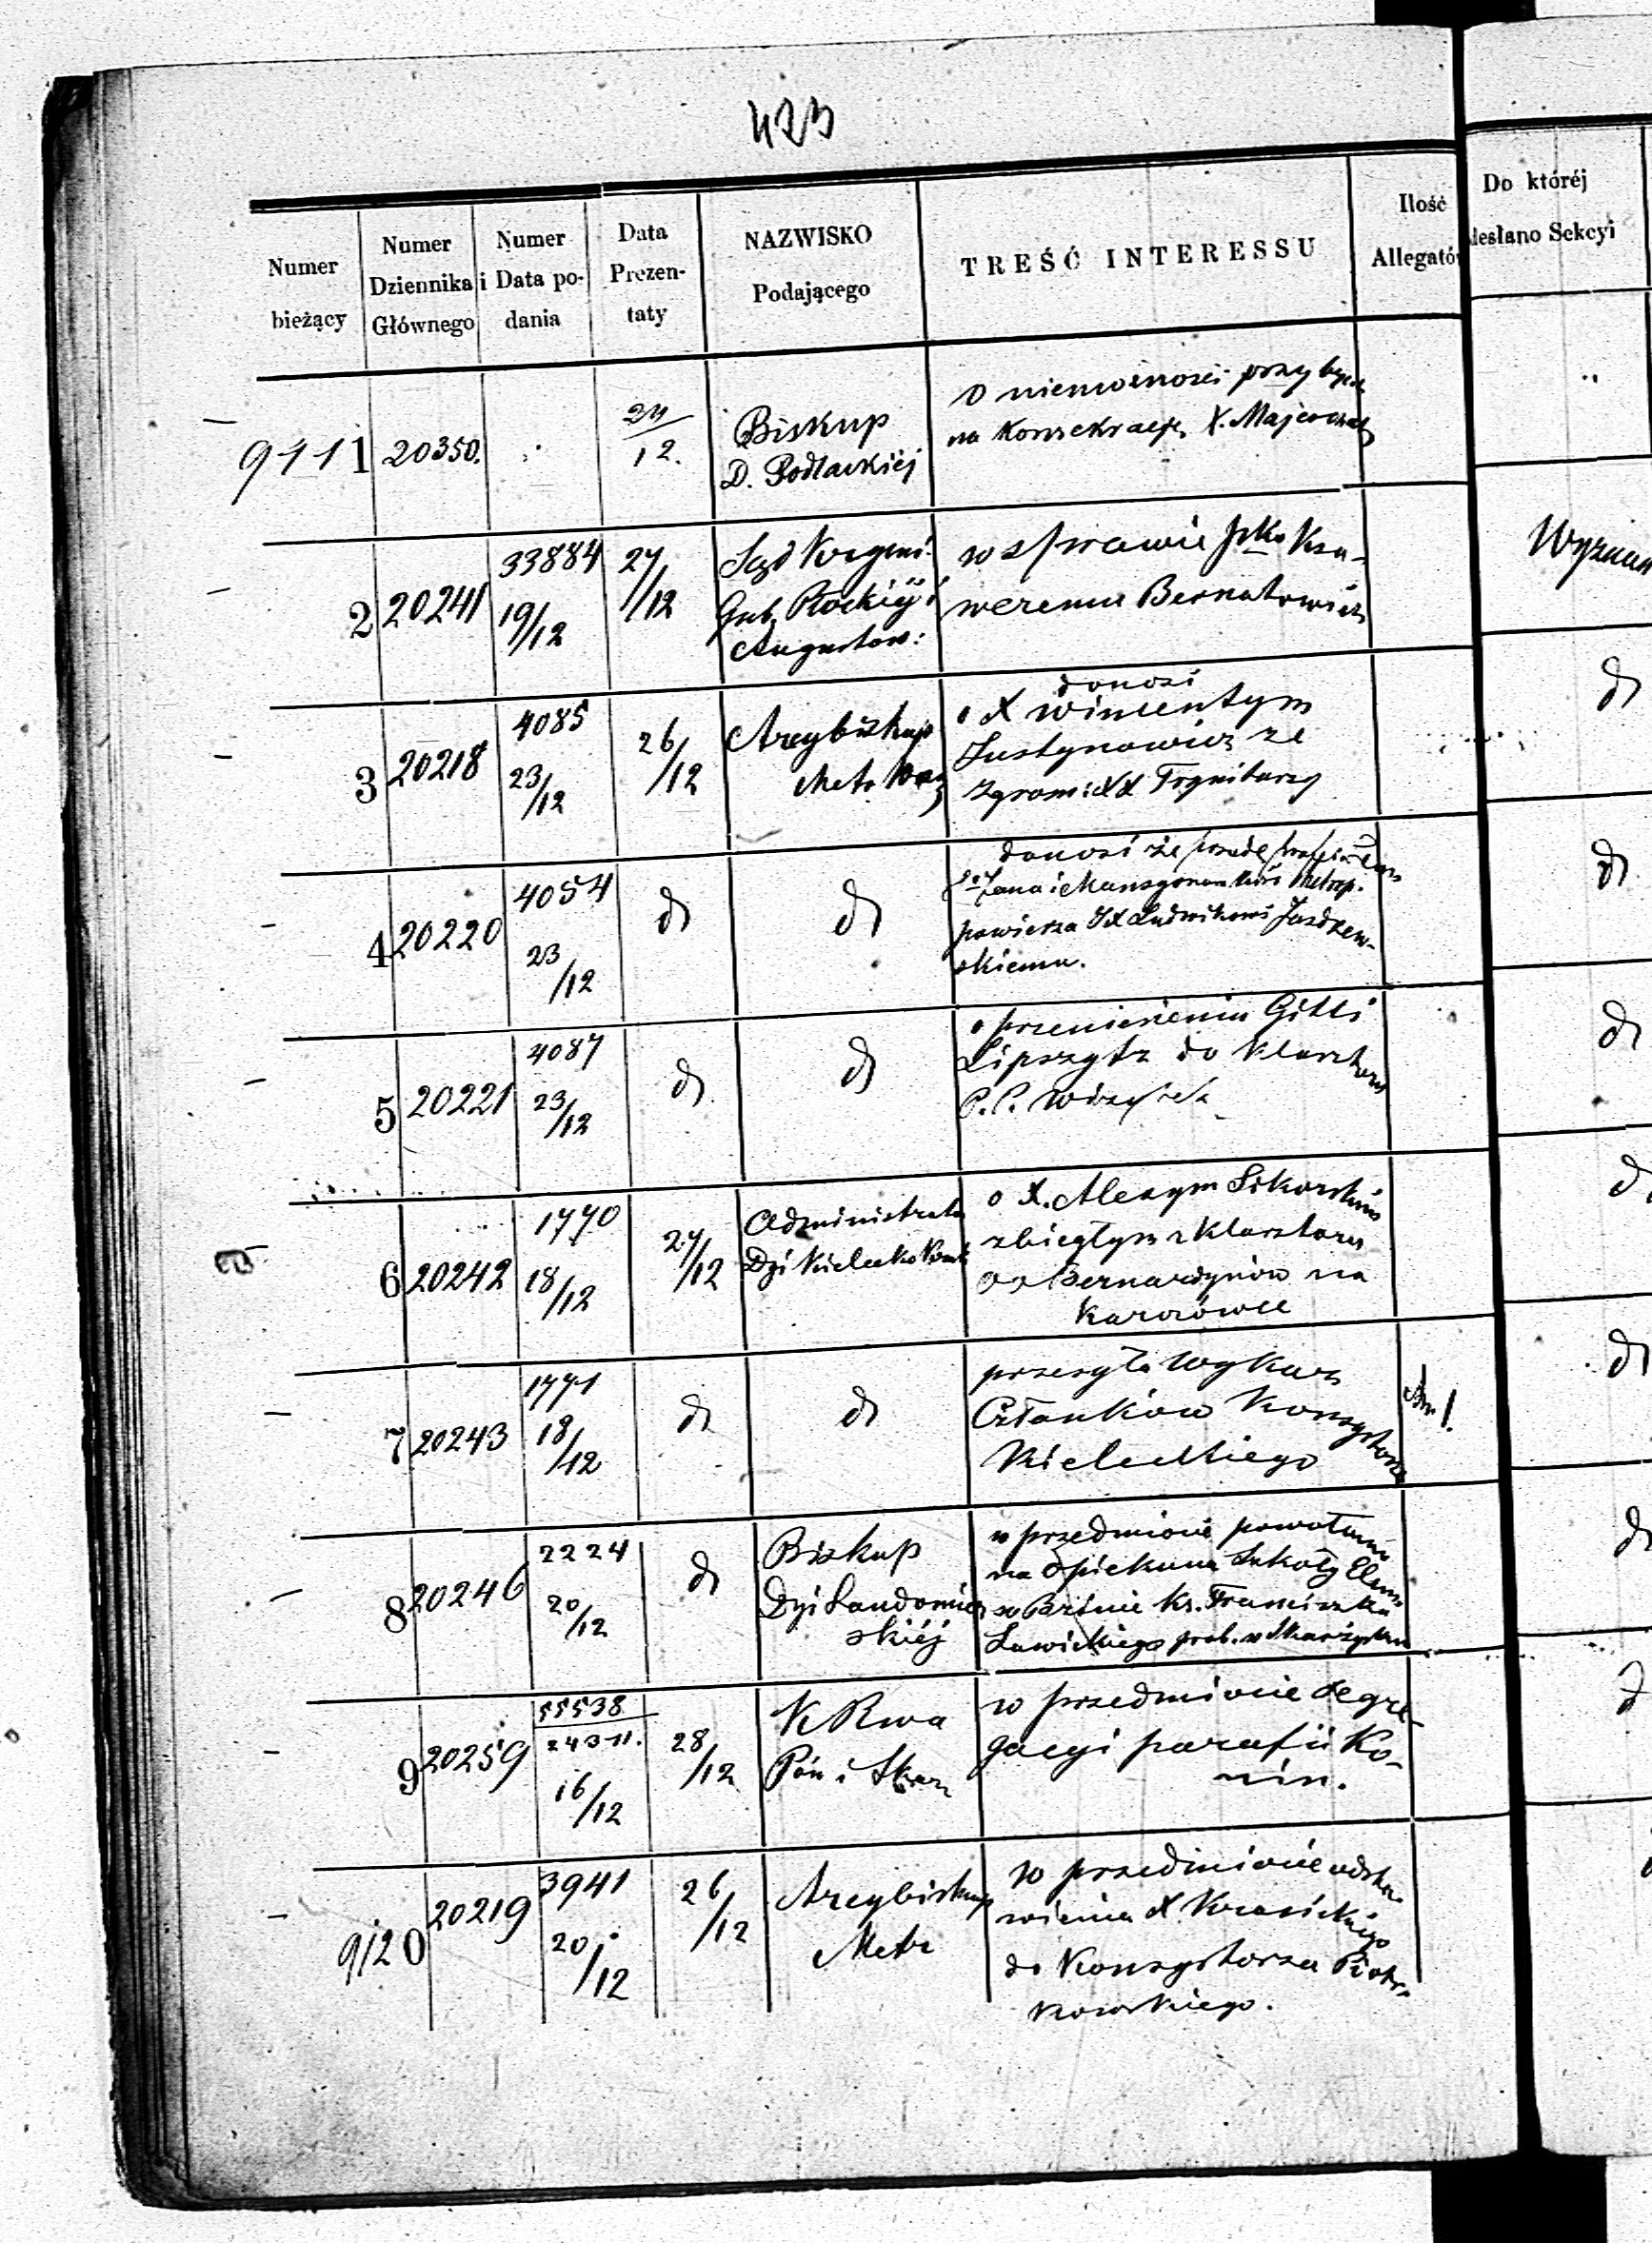 423
Numer bieżący
Numer Dziennika Głównego
Numer i Data podania
Data Prezentaty
NAZWISKO Podającego
TREŚĆ INTERESSU
Ilość Allegató
Do któréj
desłano Sekcyi
9111 20350. 24/12.
Biskup
D. Podlaskiéj
O niemożności przybycia
na Konsekracyę X.
2 20241 33884 19/12 27/12
Sąd Krymi:
Gub. Płockiéj i
Augustow:
w sprawie Jks Ksa-
weremu Bernatowicz
3 20218 4085 23/12 26/12
Arcybiskup
Metr Warz
donosi
o X Wincentym
Justynowicz ze
Zgrom: XX Trynitarzy
4 20220 4054 23/12 d d
donosi że
Śo Jana i Metrop.
powierza JX Ludwikowi Jazdzew-
skiemu.
5 20221 4087 23/12 d d
o przeniesieniu Gitli
Lipszytz do Klasztoru
P.P. Wizytek
6 20242 1770 18/12 27/12
Administrator
Dyi Kielecko Krak
o X. Alexym Sikorskim
zbiegłym z Klasztoru
OO Bernardynów na
Karczówce
7 20243 1771 18/12 d d
przesyła Wykaz
Członków Konsystorza
Kieleckiego
1.
8 20246 2224 20/12 d
Biskup
Dyi Sandomier
skiéj
w przedmiocie powołania
na Opiekuna Szkoły Elem:
w ks. Franciszka
Sawickiego prob. w Skarżysku
9 20259 55538/24311. 16/12 28/12
K Rwa
Pón i Skar
w przedmiocie segre-
gacyi parafii Ko-
nin.
9120 20219 3941 20/12 26/12
Arcybiskup
Metr
w przedmiocie odsta-
wienia X. Krasickiego
do Konsystorza Piotr-
kowskiego.
d
d
d
d
d
d
d